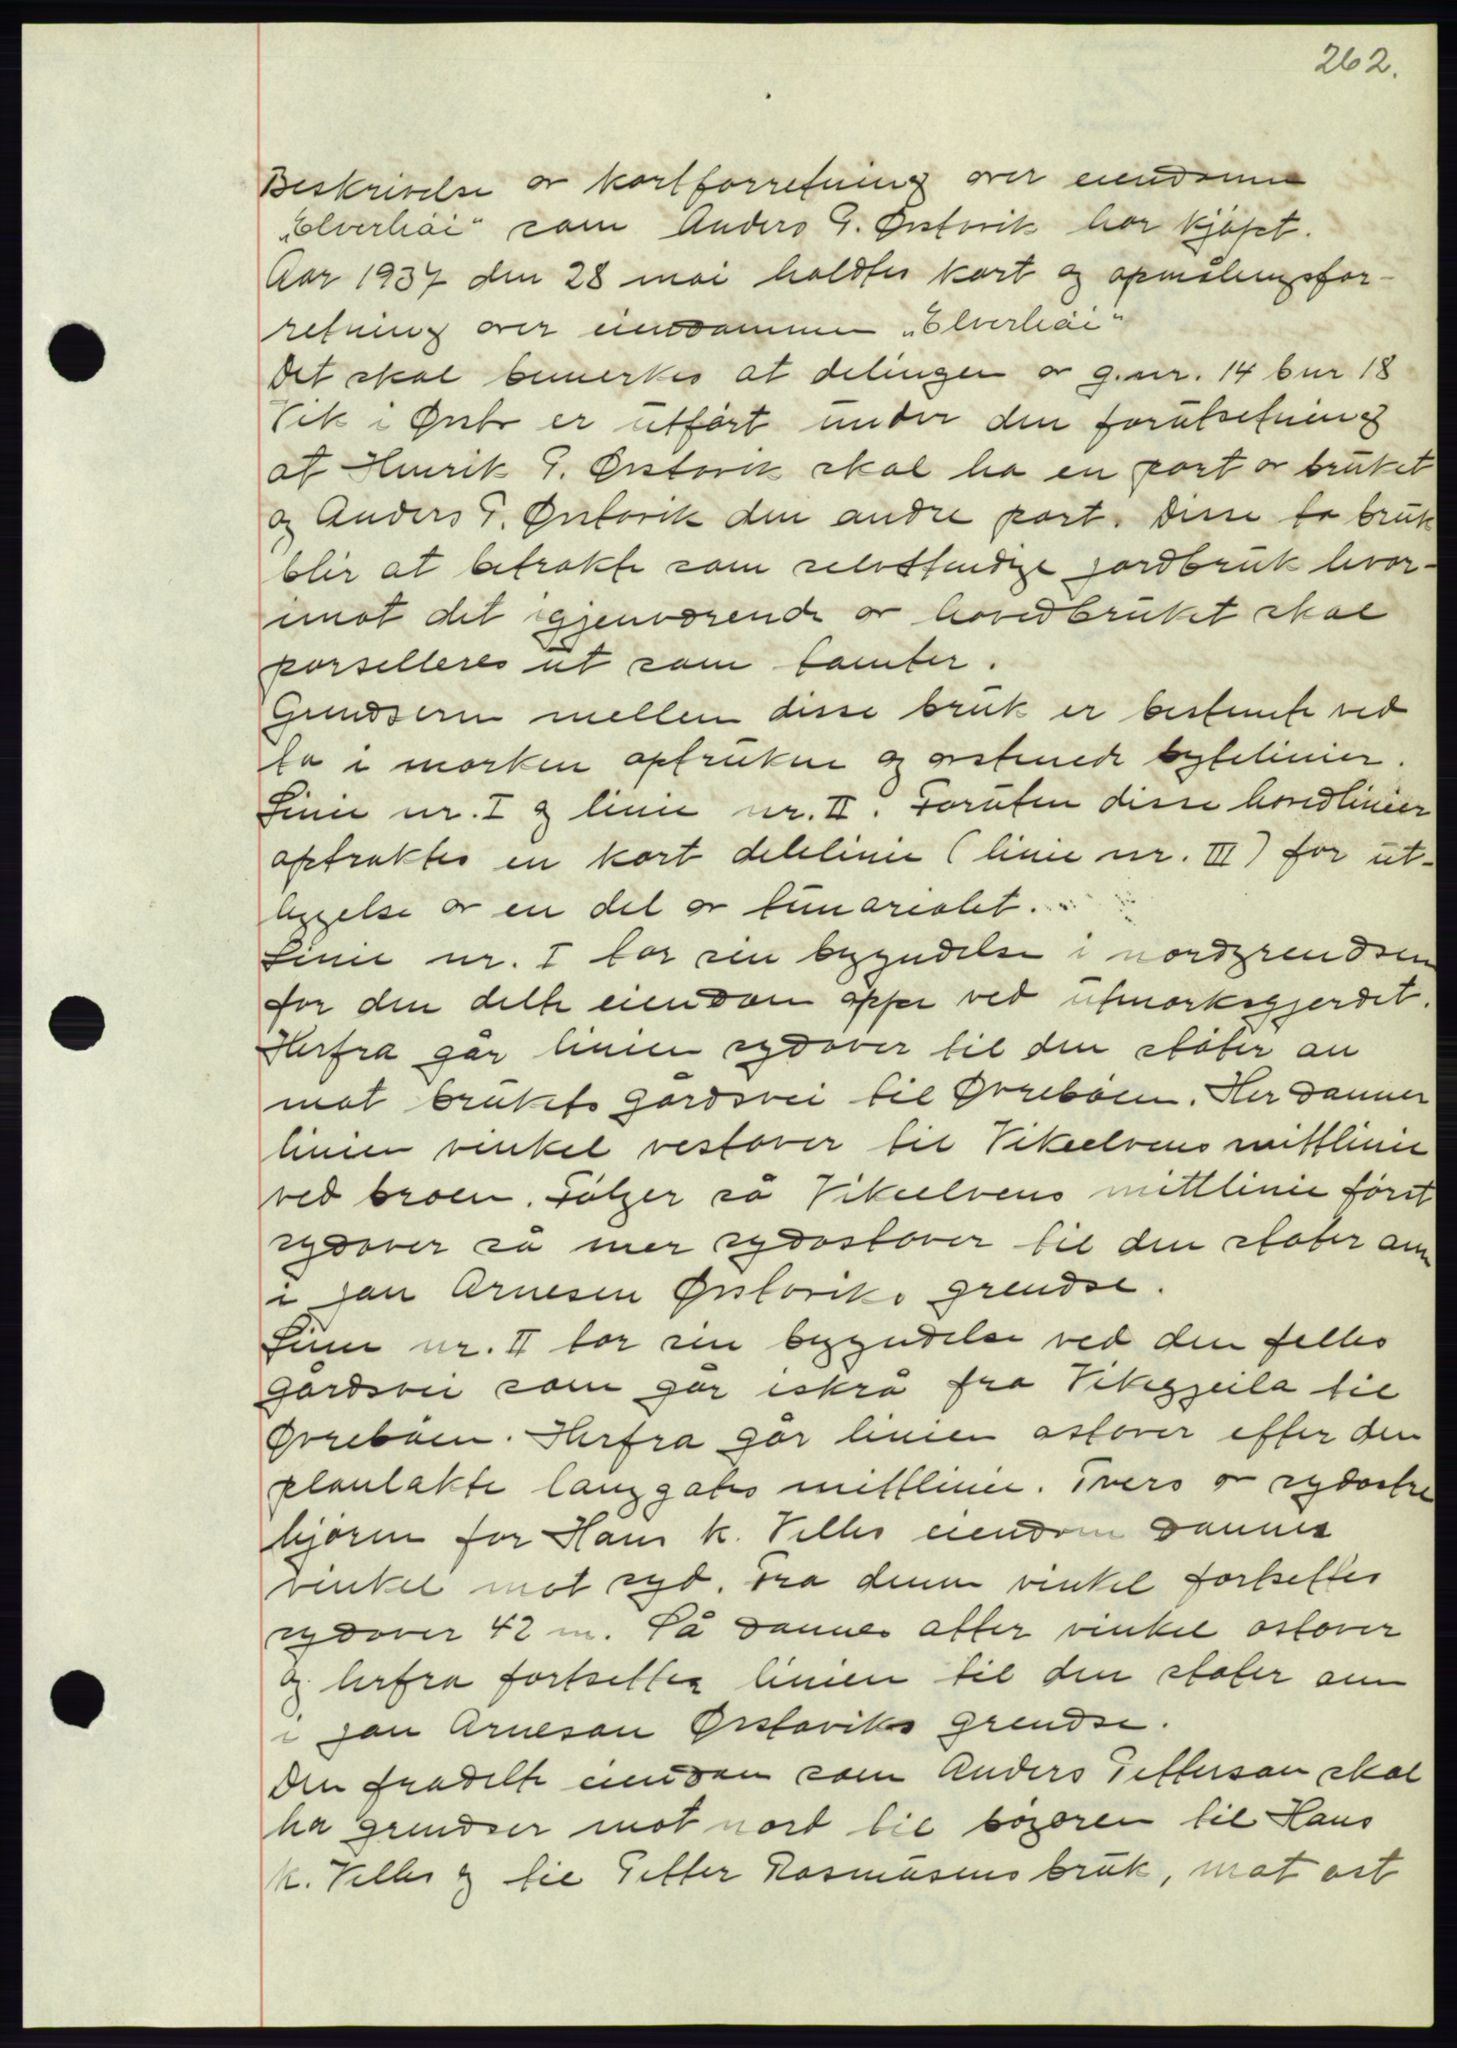 262.
Beskrivelse av kartforretning over eiendomme
„Elverhöi" som Anders P. Ørstavik har kjöpt.
Aar 1937 den 28 mai holdtes kart og opmålingsfor-
retning over eiendommen „Elverhöi"
Det skal bemerkes at delingen av g.nr. 14 bnr 18
Vik i Ørsta er utfört under den forutsetning
at Henrik P. Ørstavik skal ha en part av bruket
og Anders P. Ørstavik den andre part. Disse to bruk
blir at betrakte som selvstendige jordbruk hvor-
imot det igjenværende av hovedbruket skal
parselleres ut som tomter.
Grendsern mellem disse bruk er bestemte ved
to i marken optrukne og avstenede bytelinier.
Linie nr. I og linie nr. II. Foruten disse hovedlinier
optraktes en kort delelinie (linie nr. III) for ut-
leggelse av en del av tunarialet.
Linie nr. I tar sin begyndelse i nordgrendsen
for den delte eiendom oppe ved utmarksgjerdet.
Herfra går linien sydover til den stöter an
mot brukets gårdsvei til Øvreböen. Her danner
linien vinkel vestover til Vikeelvens mittlinie
ved broen. Fölger så Vikeelvens mittlinie först
sydover så mer sydostover til den stöter an
i Jan Arnesen Ørstaviks grendse.
Linie nr. II tar sin begyndelse ved den felles
gårdsvei som går iskrå fra Vikegjeila til
Øvreböen. Herfra går linien østover efter den
planlakte langgates mittlinie. Tvers av sydøstre
hjörne for Hans K. Velles eiendom dannes
vinkel mot syd. Fra denne vinkel fortsettes
sydover 42 m. Så dannes atter vinkel østover
og herfra fortsettes linien til den stöter an
i Jan Arneson Ørstaviks grendse.
Den fradelte eiendom som Anders Petterson skal
ha grendser mot nord til bögaren til Hans
K. Velles og til Petter Rasmusens bruk, mot øst